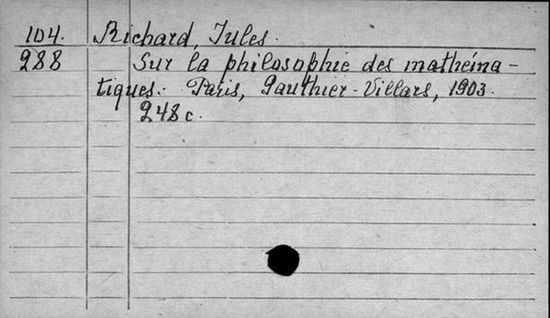 104. Richard, Jules.
288 Sur la philosophie des mathéma-
tiques. Paris, Gauthier-Villars, 1903.
248 c.